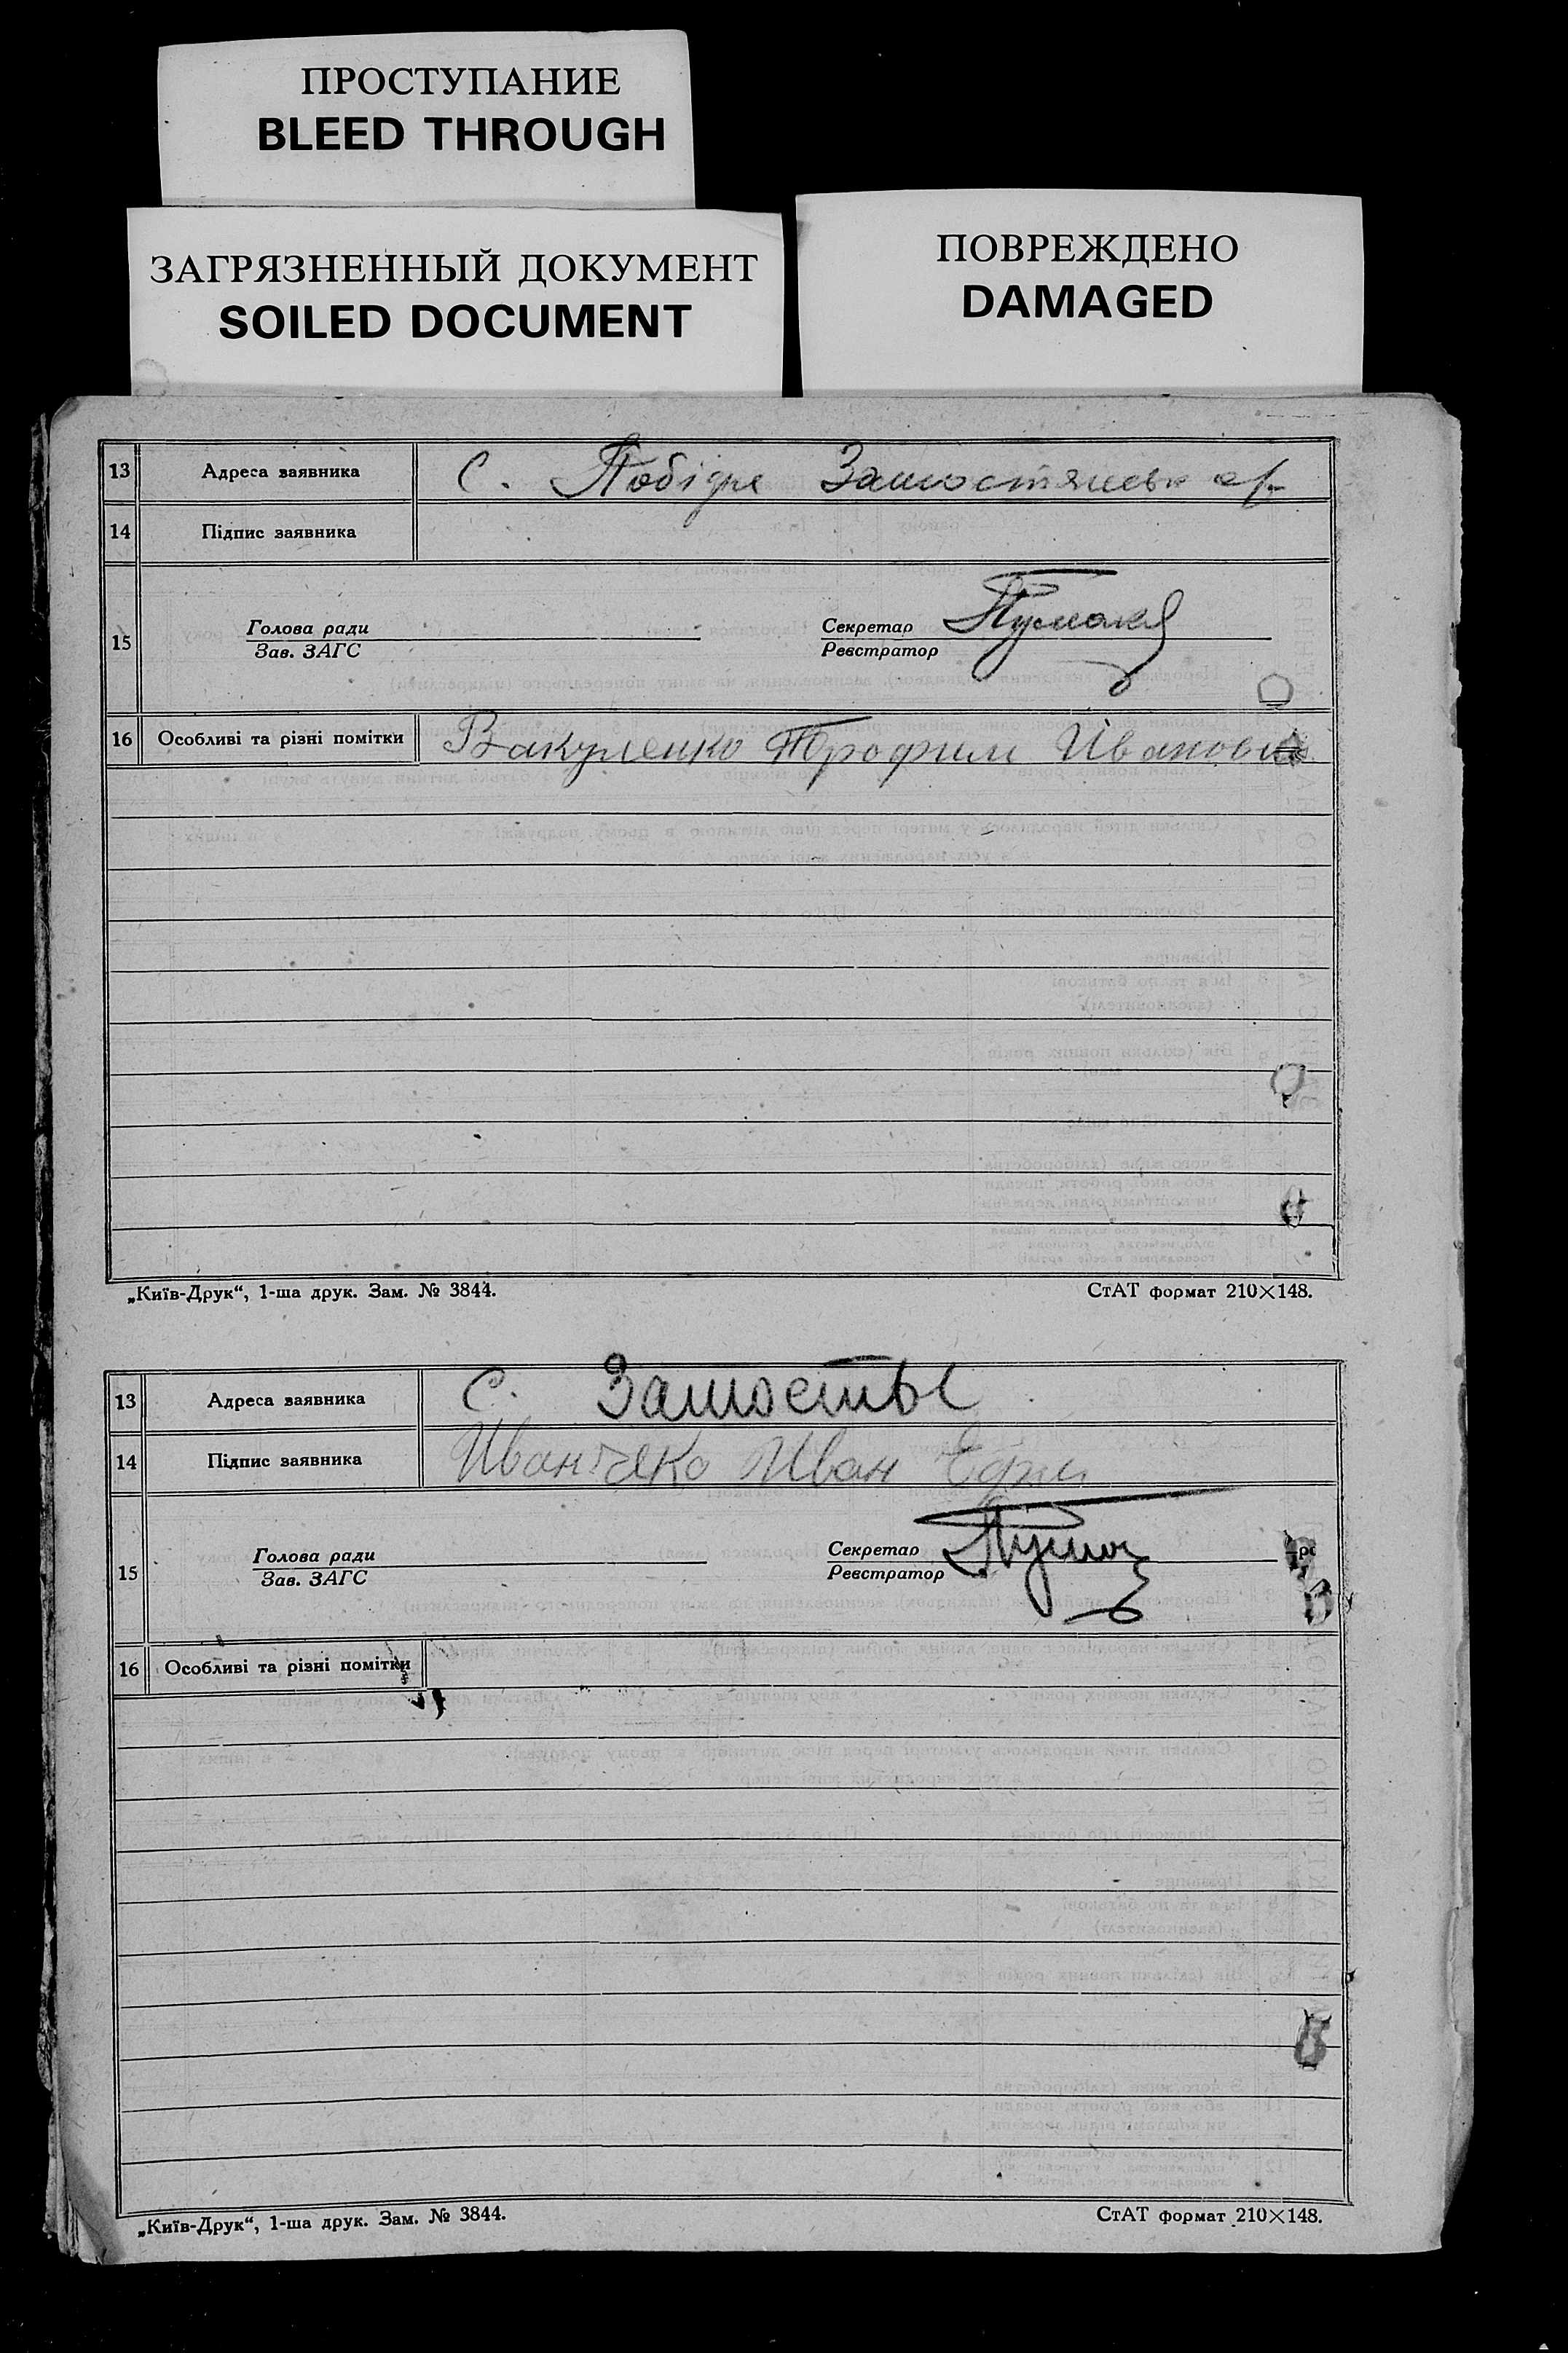 ПРОСТУПАНИЕ
BLEED THROUGH
ЗАГРЯЗНЕННЫЙ ДОКУМЕНТ
SOILED DOCUMENT
ПОВРЕЖДЕНО
DAMAGED
13 Адреса заявника С. Замостянськ
14 Підпис заявника
15 Голова ради Секретар
Зав. ЗАГС Реєстратор
16 Особливі та різні помітки Вакуленко Трофим Иванович
„Київ-Друк“, 1-ша друк. Зам. № 3844. СтАТ формат 210×148.
13 Адреса заявника С. Замостье
14 Підпис заявника Иван
15 Голова ради Секретар
Зав. ЗАГС Реєстратор
16 Особливі та різні помітки
„Київ-Друк“, 1-ша друк. Зам. № 3844. СтАТ формат 210×148.